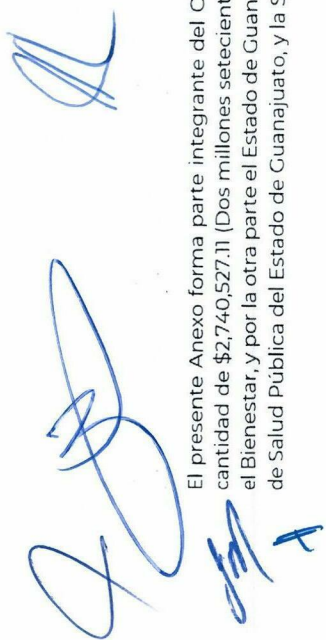 El presente Anexo forma parte integrante del
cantidad de $2,740,527.11 (Dos millones
el Bienestar, y por la otra parte el Estado de
de Salud Pública del Estado de Guanajuato, y la